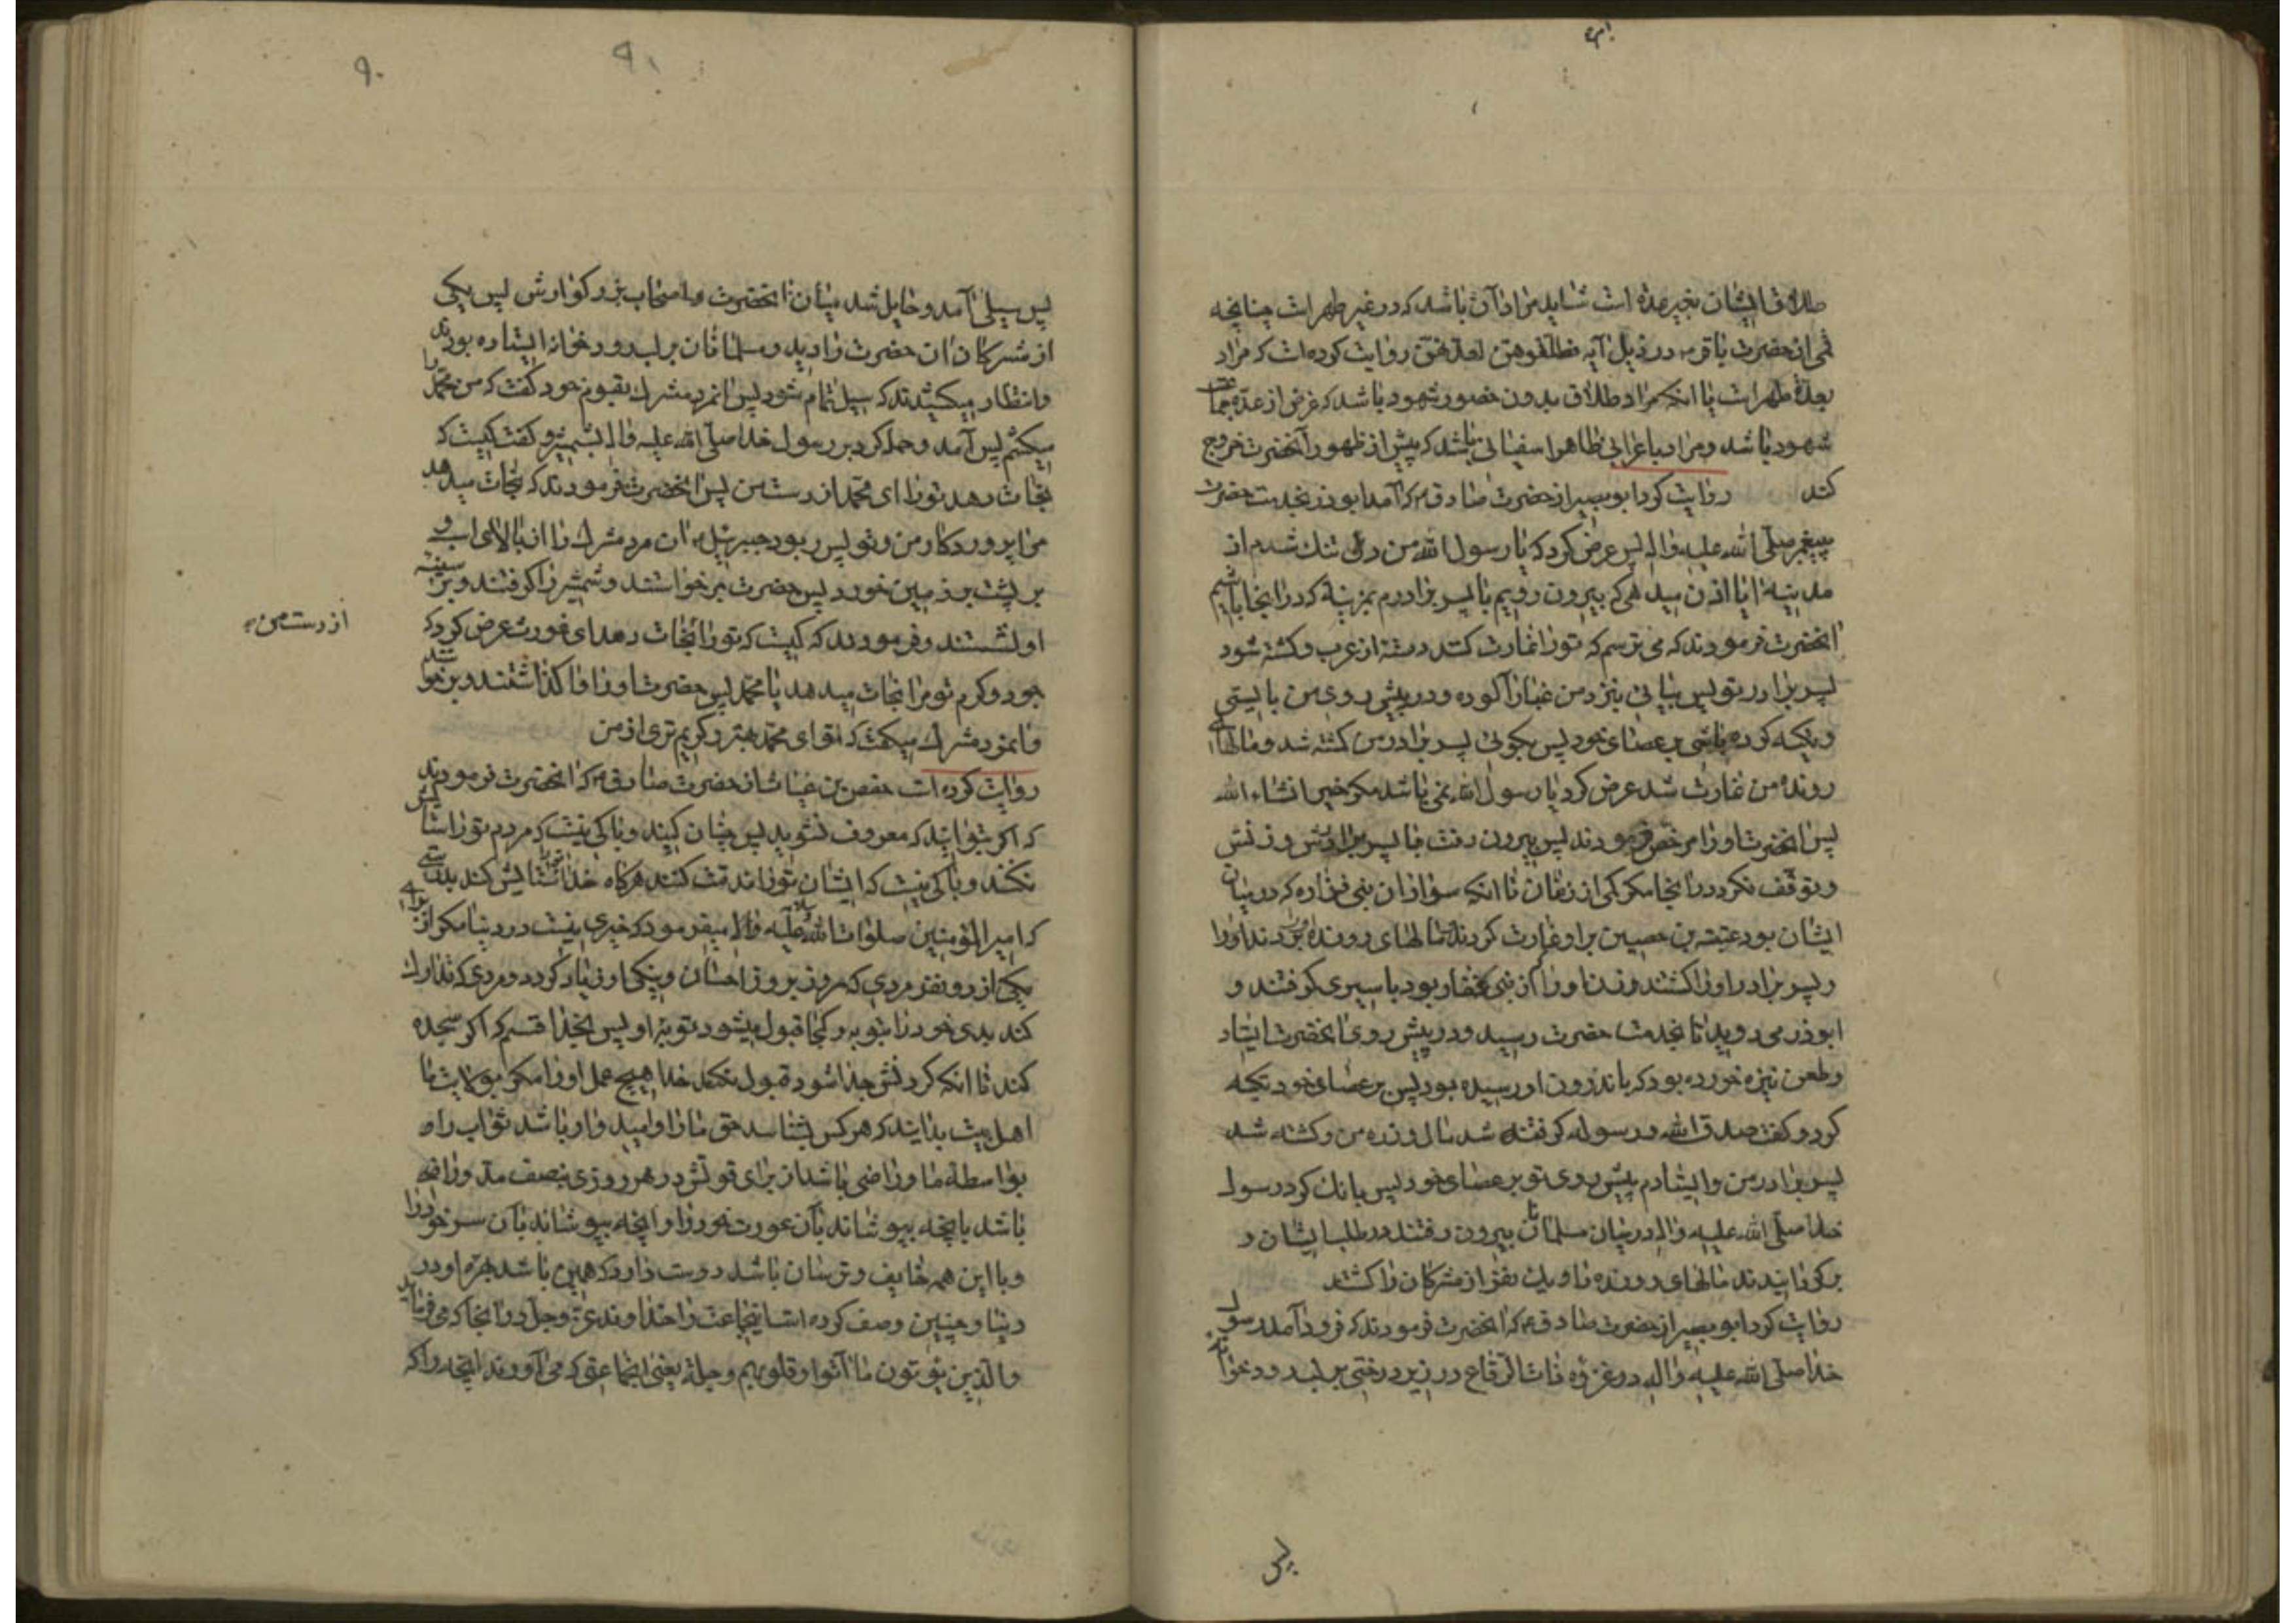 طلاق ایشان بغیر عده است شاید مراد آن باشد که در غیر طهر است چنانچه
قمی از حضرت باقر در ذیل آیه فطلقوهن لعدتهن روایت کرده است که مراد
بعدة طهر است یا انکه مراد طلاق بدون حضور شهود باشد که غرض از عده
شهود باشد و مراد باعرابی ظاهرا سفیانی باشد که پیش از ظهور آنحضرت خروج
کند روایت کرد ابو بصیر از حضرت صادق که آمد ابوذر بخدمت حضرت
پیغمبر صلی الله علیه واله پس عرض کرد که یا رسول الله من دل تنك شدم از
مدینه ایا اذن میدهی که بیرون رویم با پسر برادرم بمزینه که در انجا باشیم
انحضرت فرمودند که می ترسم که تو را غارت کند دسته از عرب و کشته شود
پسر برادر تو پس بیایی بنزد من غبار آلوده و در پیش روی من بایستی
و تکیه کرده باشی بر عصای خود پس بکوئی پسر برادر من کشته شد و مالهای
رونده من غارت شد عرض کرد یا رسول الله نمی باشد مکر خیر انشاء الله
پس انحضرت او را مرخص فرمودند پس بیرون رفت با پسر برادرش و زنش
و توقف نکرد در انجا مکر کمی از زمان تا انکه سواران بنی فزاره که در میان
ایشان بود عیینة بن حصین بر او غارت کردند مالهای رونده او را
و پسر برادر او را کشتند و زن او را که از بنی غفار بود باسیری کرفتند و
ابوذر می دوید تا بخدمت حضرت رسید و در پیش روی انحضرت ایستاد
و طعن نیزه خورده بود که باندرون او رسیده بود پس بر عصای خود تکیه
کرد و کفت صدق الله و رسوله کرفته شد مال رونده من و کشته شد
پسر برادر من و ایستادم پیش روی تو بر عصای خود پس بانك کرد رسول
خدا صلی الله علیه واله در میان مسلمانان بیرون رفتند در طلب ایشان و
برکردانیدند مالهای رونده را و یك نفر از مشرکان را کشتند
روایت کرد ابو بصیر از حضرت صادق که انحضرت فرمودند که فرود آمد رسول
خدا صلی الله علیه واله در غزوه ذات الرقاع در زیر درختی بر لب رودخانه
پس
۹۰
پس سیلی آمد و حایل شد میان انحضرت و اصحاب بزرکوارش پس یکی
از مشرکان ان حضرت را دید و مسلمانان بر لب رودخانه ایستاده بودند
و انتظار میکشیدند که سیل تمام شود پس انمرد مشرك بقوم خود کفت که من محمد را
میکشم پس آمد و حمله کرد بر رسول خدا صلی الله علیه واله بشمشیر و کفت کیست که
نجات دهد تو را ای محمد از دست من پس انحضرت فرمودند که نجات میدهد
مرا پروردکار من و تو پس ربود جبرئیل ان مرد مشرك را از بالای اسب و
بر پشت بزمین خورد پس حضرت برخواستند و شمشیر را کرفتند و بر سینه
او نشستند و فرمودند که کیست که تو را نجات دهد ای غورث عرض کرد که
از دست من
جود و کرم تو مرا نجات میدهد یا محمد پس حضرت او را وا کذاشتند و برخواستند
و انمرد مشرك میکفت که توای محمد بهتر و کریم تری از من
روایت کرده است حفص بن غیاث از حضرت صادق که انحضرت فرمودند
که اکر بتوانید که معروف نشوید پس چنان کنید و باکی نیست که مردم تو را ستایش
نکنند و باکی نیست که ایشان تو را مذمت کنند هرکاه خدا تو را ستایش کند بدرستی
که امیر المؤمنین صلوات الله علیه واله میفرمود که خیری نیست در دنیا مکر از برای
یکی از دو نفر مردی که روز بروز احسان و نیکی او زیاد کردد و مردی که تدارك
کند بدی خود را بتوبه و کجا قبول میشود توبه او پس بخدا قسم که اکر سجده
کند تا انکه کردنش جدا شود قبول نکند خدا هیچ عمل او را مکر بولایت ما
اهل بیت بدانید که هر کس بشناسد حق ما را و امیدوار باشد ثواب را
بواسطه ما و راضی باشد از برای قوتش در هر روزی بنصف مد و راضی
باشد بانچه بپوشاند بآن عورت خود را و انچه بپوشاند بآن سر خود را
و با این همه خایف و ترسان باشد دوست دارد که همین باشد بهره او در
دنیا و چنین وصف کرده است اینجماعت را خداوند عز وجل در انجا که می فرماید
والذین یؤتون ما آتوا وقلوبهم وجلة یعنی انجماعتی که می آورند انچه را که